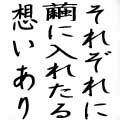 それぞれに
繭に入れたる
想いあり